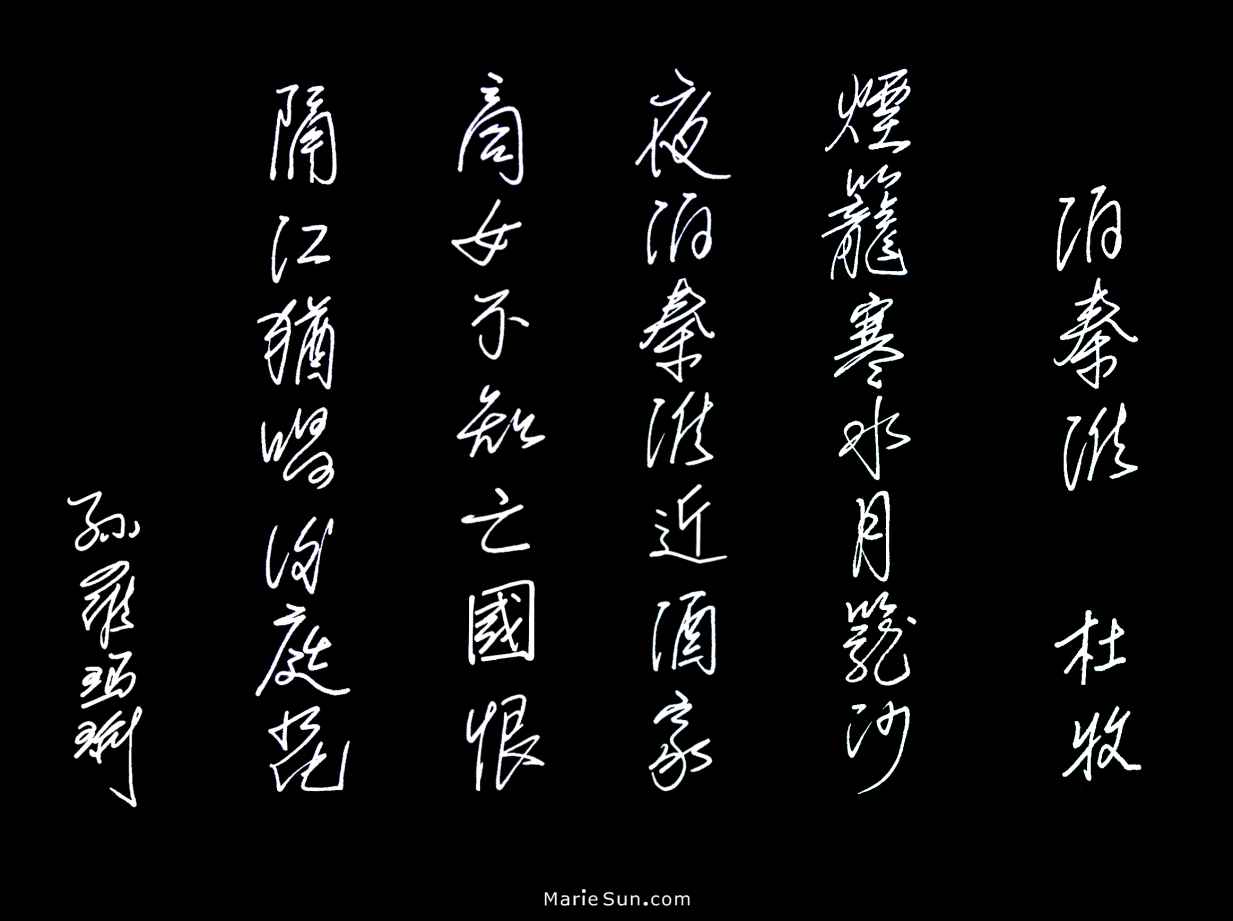 泊秦淮 杜牧
煙籠寒水月籠沙
夜泊秦淮近酒家
商女不知亡國恨
隔江猶唱後庭花
孫羅瑪琍
MarieSun.com